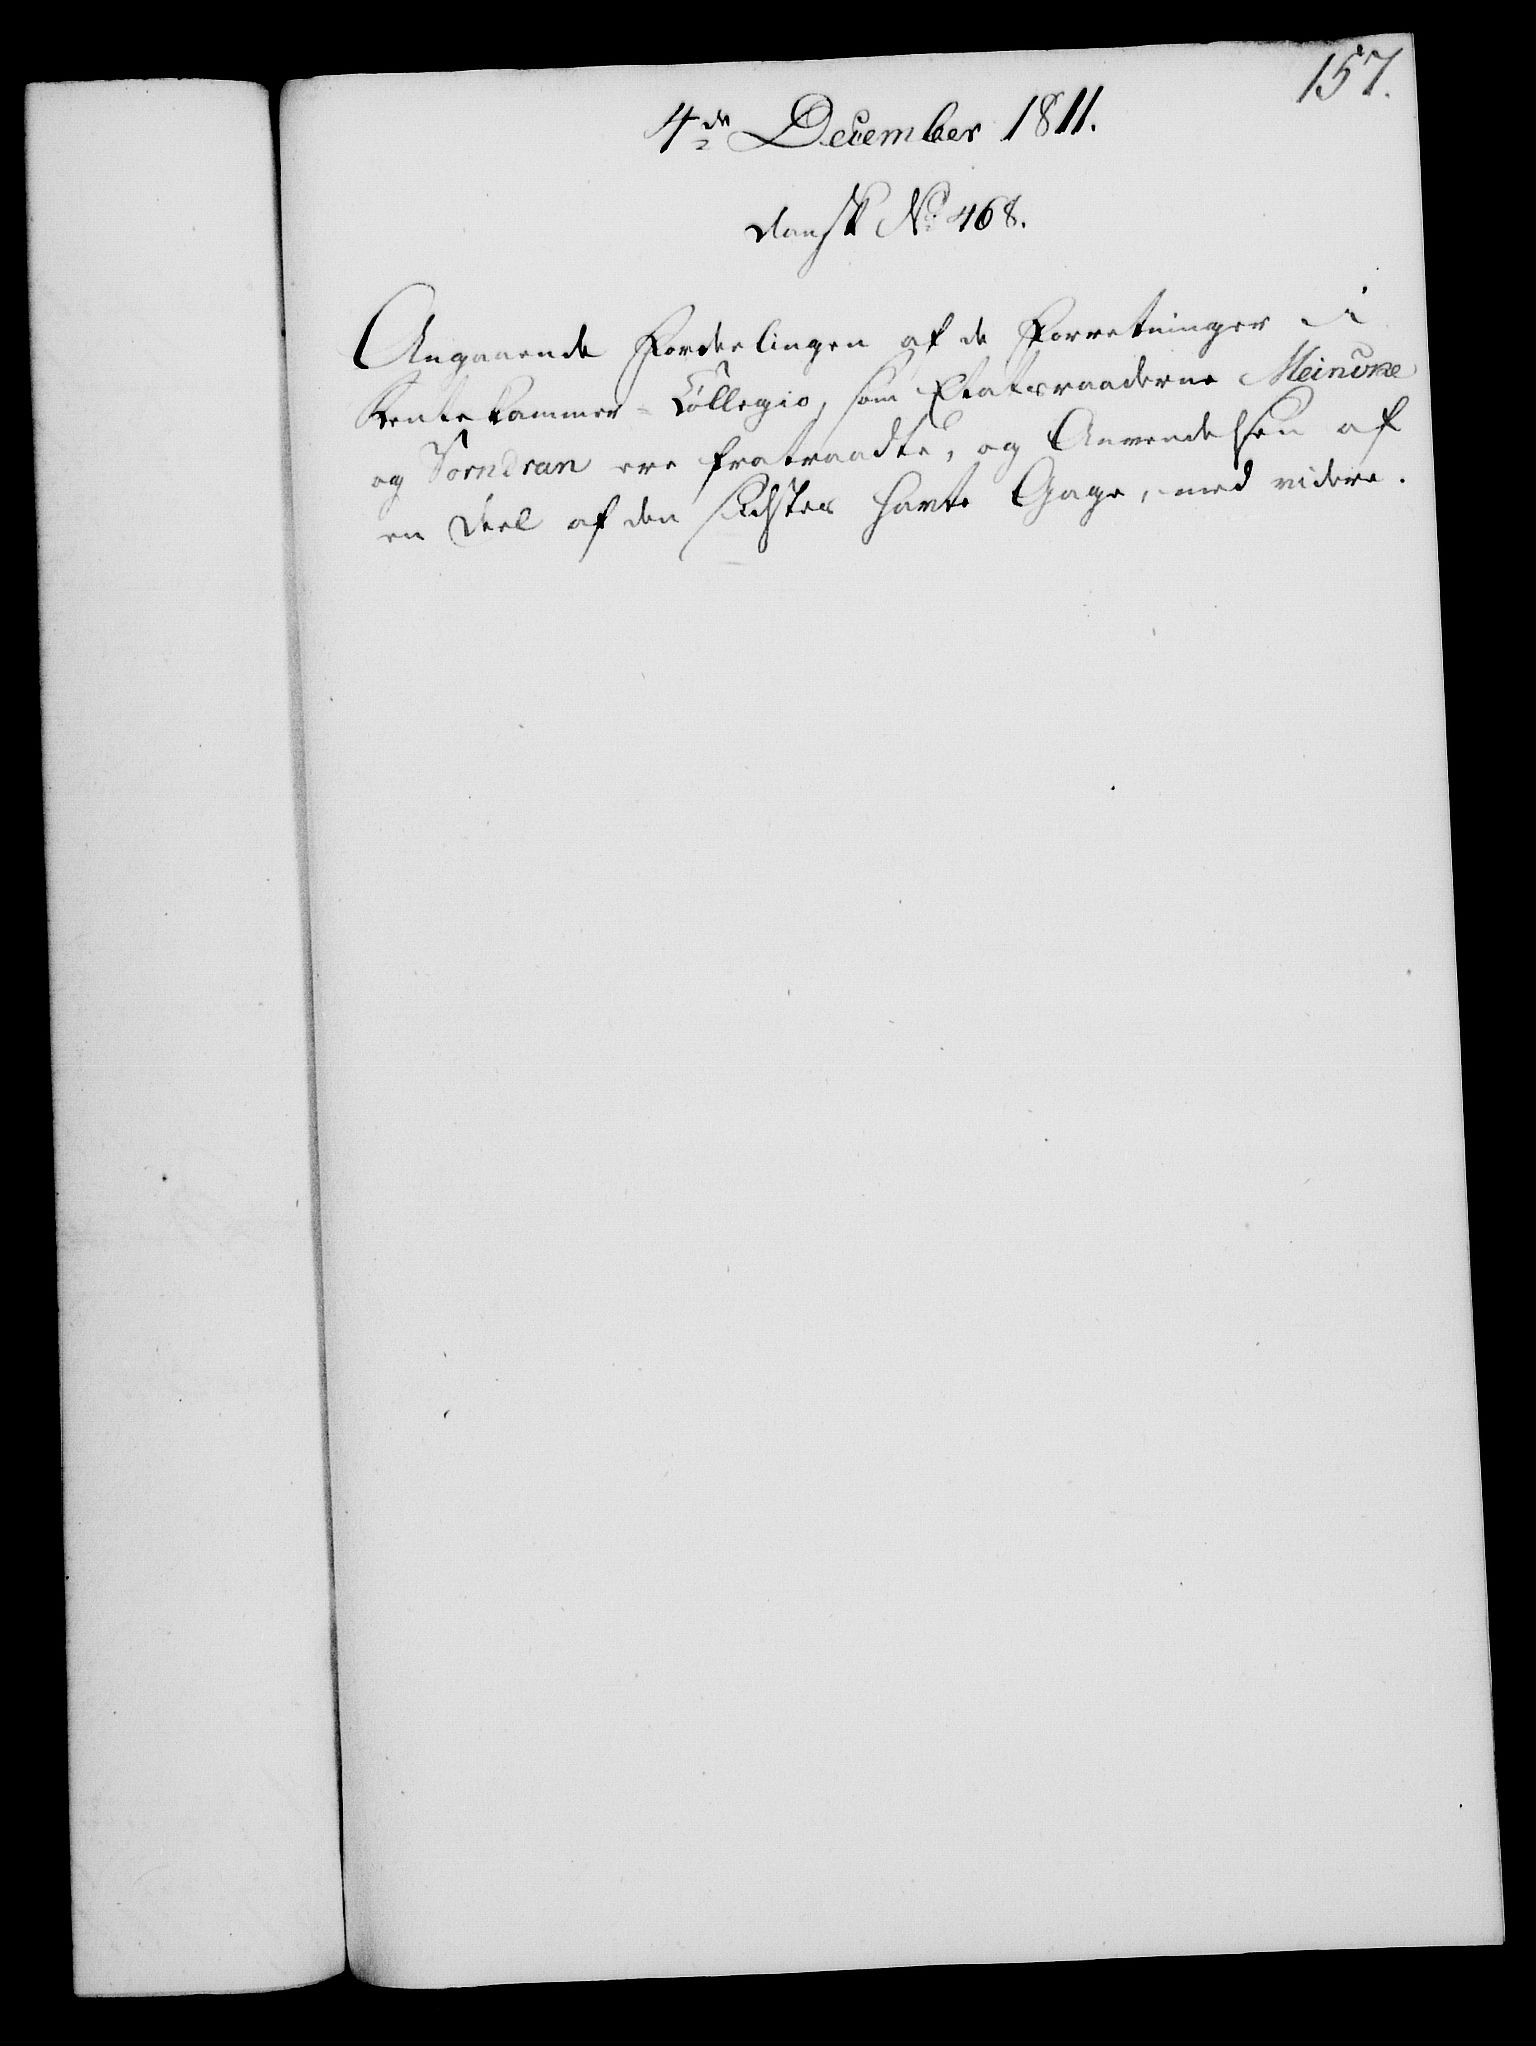 157.
4de December 1811.
dansk No 468.
Angaaende Fordeelingen af de Forretninger i
Rentekammer-Collegio, som Etatsraaderne Meincke
og Sorndran ere fratraadte, og Anvendelsen af
en Deel af den sidstes havte Gage, med videre.